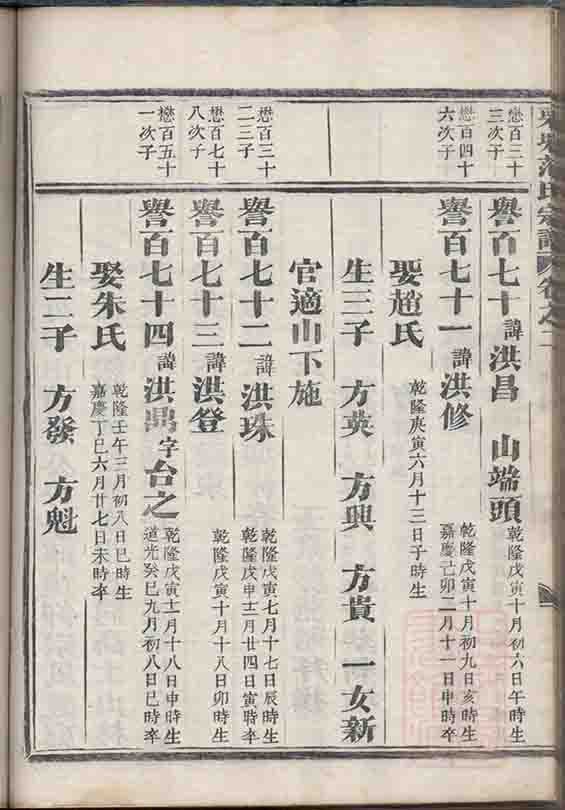 范氏宗譜 卷之二
懋百三十三次子
譽百七十 諱洪昌 山端頭 乾隆戊寅十月初六日午時生
懋百四十六次子
譽百七十一 諱洪修 乾隆戊寅十月初九日亥時生 嘉慶己卯二月十一日申時卒
娶趙氏 乾隆庚寅六月十三日子時生
生三子 方英 方興 方貴 一女新
官適山下施
懋百三十二三子
譽百七十二 諱洪珠 乾隆戊寅七月十七日辰時生 乾隆戊申十二月廿四日寅時卒
懋百七十八次子
譽百七十三 諱洪登 乾隆戊寅十月十八日卯時生
懋百五十一次子
譽百七十四 諱洪禼 字台之 乾隆戊寅十二月十八日申時生 道光癸巳九月初八日巳時卒
娶朱氏 乾隆壬午三月初八日巳時生 嘉慶丁巳六月廿七日未時卒
生二子 方發 方魁